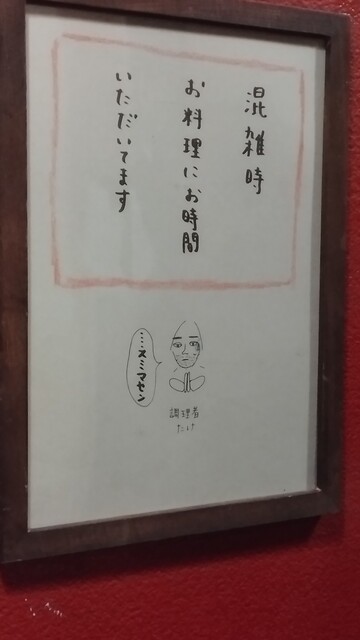 混雑時
お料理にお時間
いただいてます
....スミマセン
調理者
たけ